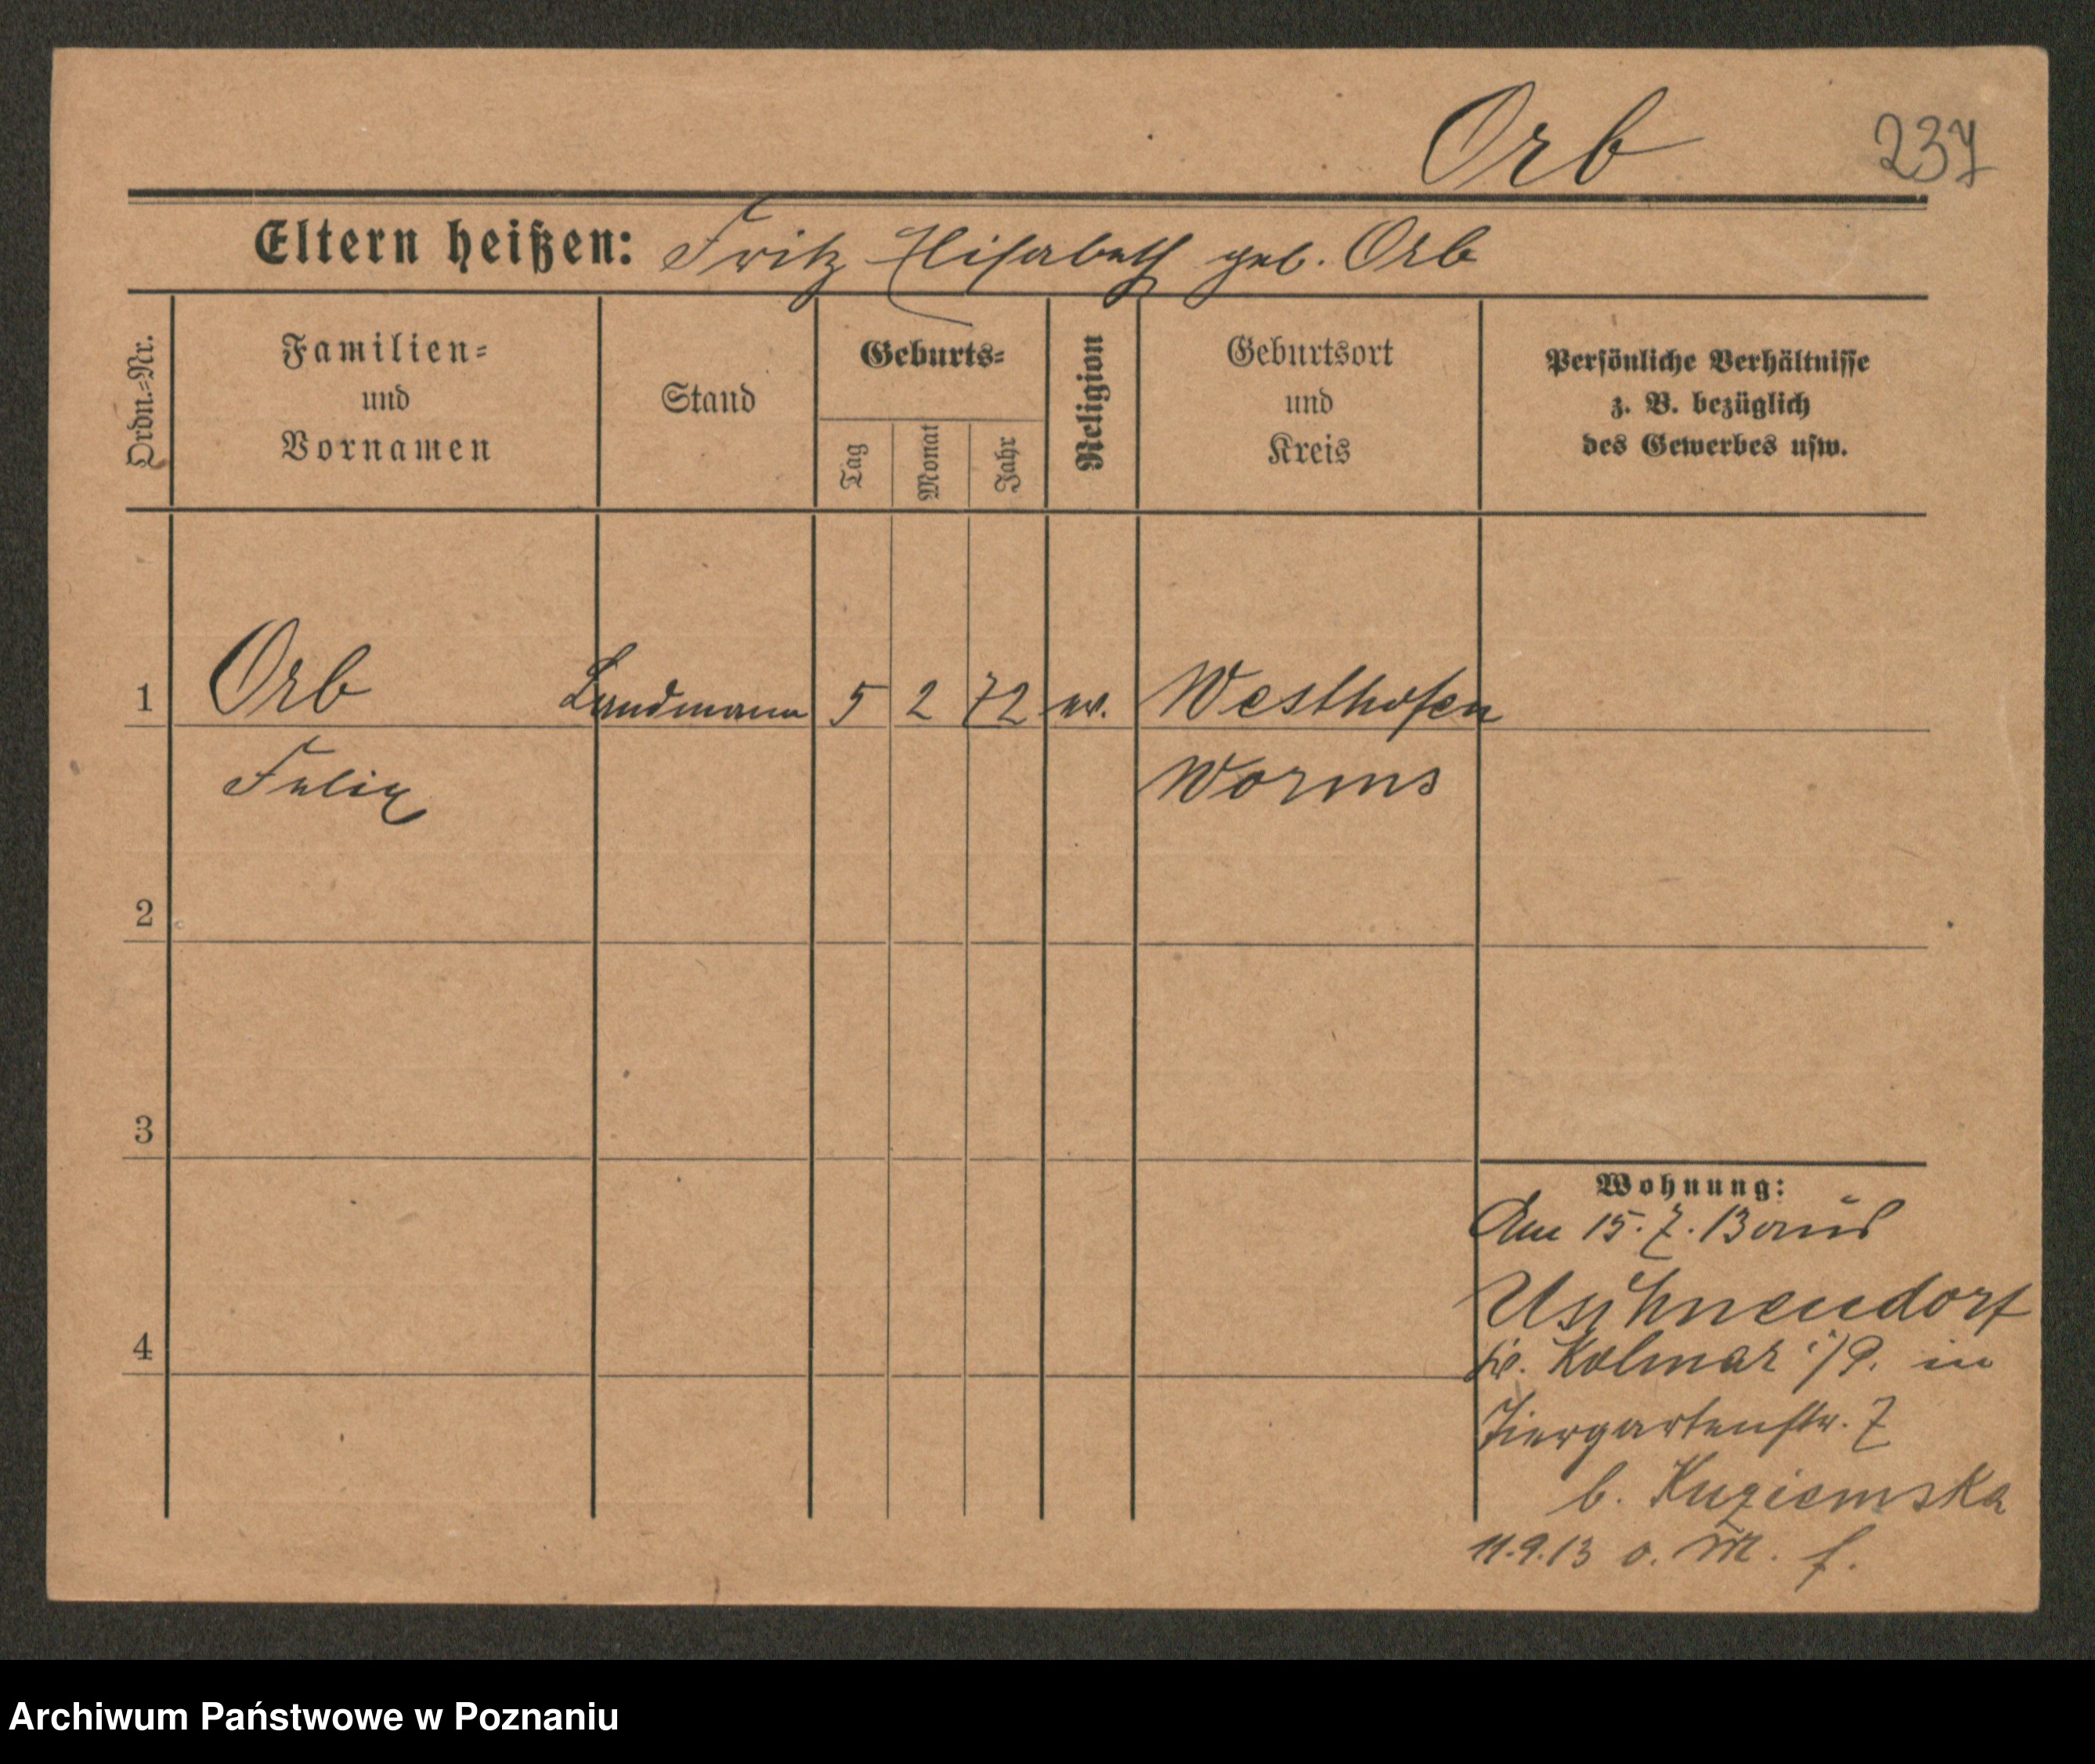 Orb
237
Eltern heißen: Fritz Elisabeth geb. Orb
Ordn.=Nr.
Familien=
und
Vornamen
Stand
Geburts=
Tag
Monat
Jahr
Religion
Geburtsort
und
Kreis
Persönliche Verhältnisse
z. B. bezüglich
des Gewerbes usw.
1 Orb Landmann 5 2 72 ev. Westhofen
Felix Worms
2
3
4
Wohnung:
Am 15.7.13 aus
Uschnendorf
Kr. Kolmar i/P. in
Tiergartenstr. 7
b. Kuziemska
11.9.13 o. M. f.
Archiwum Państwowe w Poznaniu